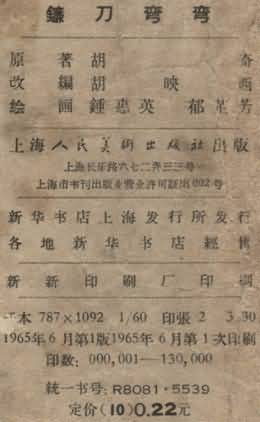 鐮刀弯弯
原著 胡奇
改編 胡映西
绘画 鍾惠英 郁芷芳
上海人民美術出版社出版
上海长乐路六七二弄三三号
上海市书刊出版业营业許可証出002号
新华书店上海发行所发行
各地新华书店經售
新新印刷厂印刷
开本 787×1092 1/60 印張 2 3/30
1965年6月第1版1965年6月第1次印刷
印数：000,001—130,000
統一书号：R8081·5539
定价(10)0.22元